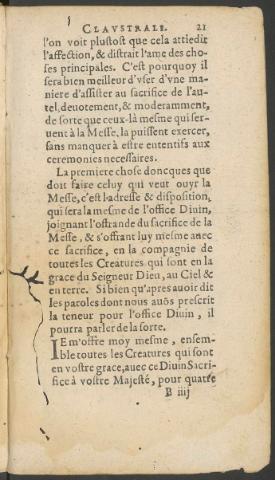 CLAVSTRALE. 21
l'on voit plustost que cela attiedit
l'affection, & distrait l'ame des cho-
ses principales. C'est pourquoy il
sera bien meilleur d'vser d'vne ma-
niere d'assister au sacrifice de l'au-
tel, deuotement, & moderamment,
de sorte que ceux-là mesme qui ser-
uent à la Messe, la puissent exercer,
sans manquer à estre ententifs aux
ceremonies necessaires.
La premiere chose doncques que
doit faire celuy qui veut ouyr la
Messe, c'est l'adresse & disposition,
qui sera la mesme de l'office Diuin,
joignant l'offrande du sacrifice de la
Messe, & s'offrant luy mesme auec
ce sacrifice, en la compagnie de
toutes les Creatures qui sont en la
grace du Seigneur Dieu, au Ciel &
en terre. Si bien qu'apres auoir dit
les paroles dont nous auõs prescrit
la teneur pour l'office Diuin, il
pourra parler de la sorte.
IE m'offre moy mesme, ensem-
ble toutes les Creatures qui sont
en vostre grace, auec ce Diuin Sacri-
fice à vostre Majesté, pour quatre
B iiij